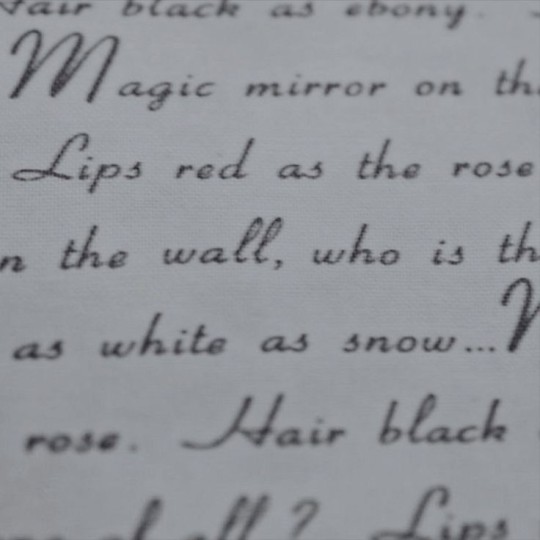 Hair black as ebony.
Magic mirror on th
Lips red as the rose
n the wall, who is th
as white as snow...
rose. Hair black
of all? Lips